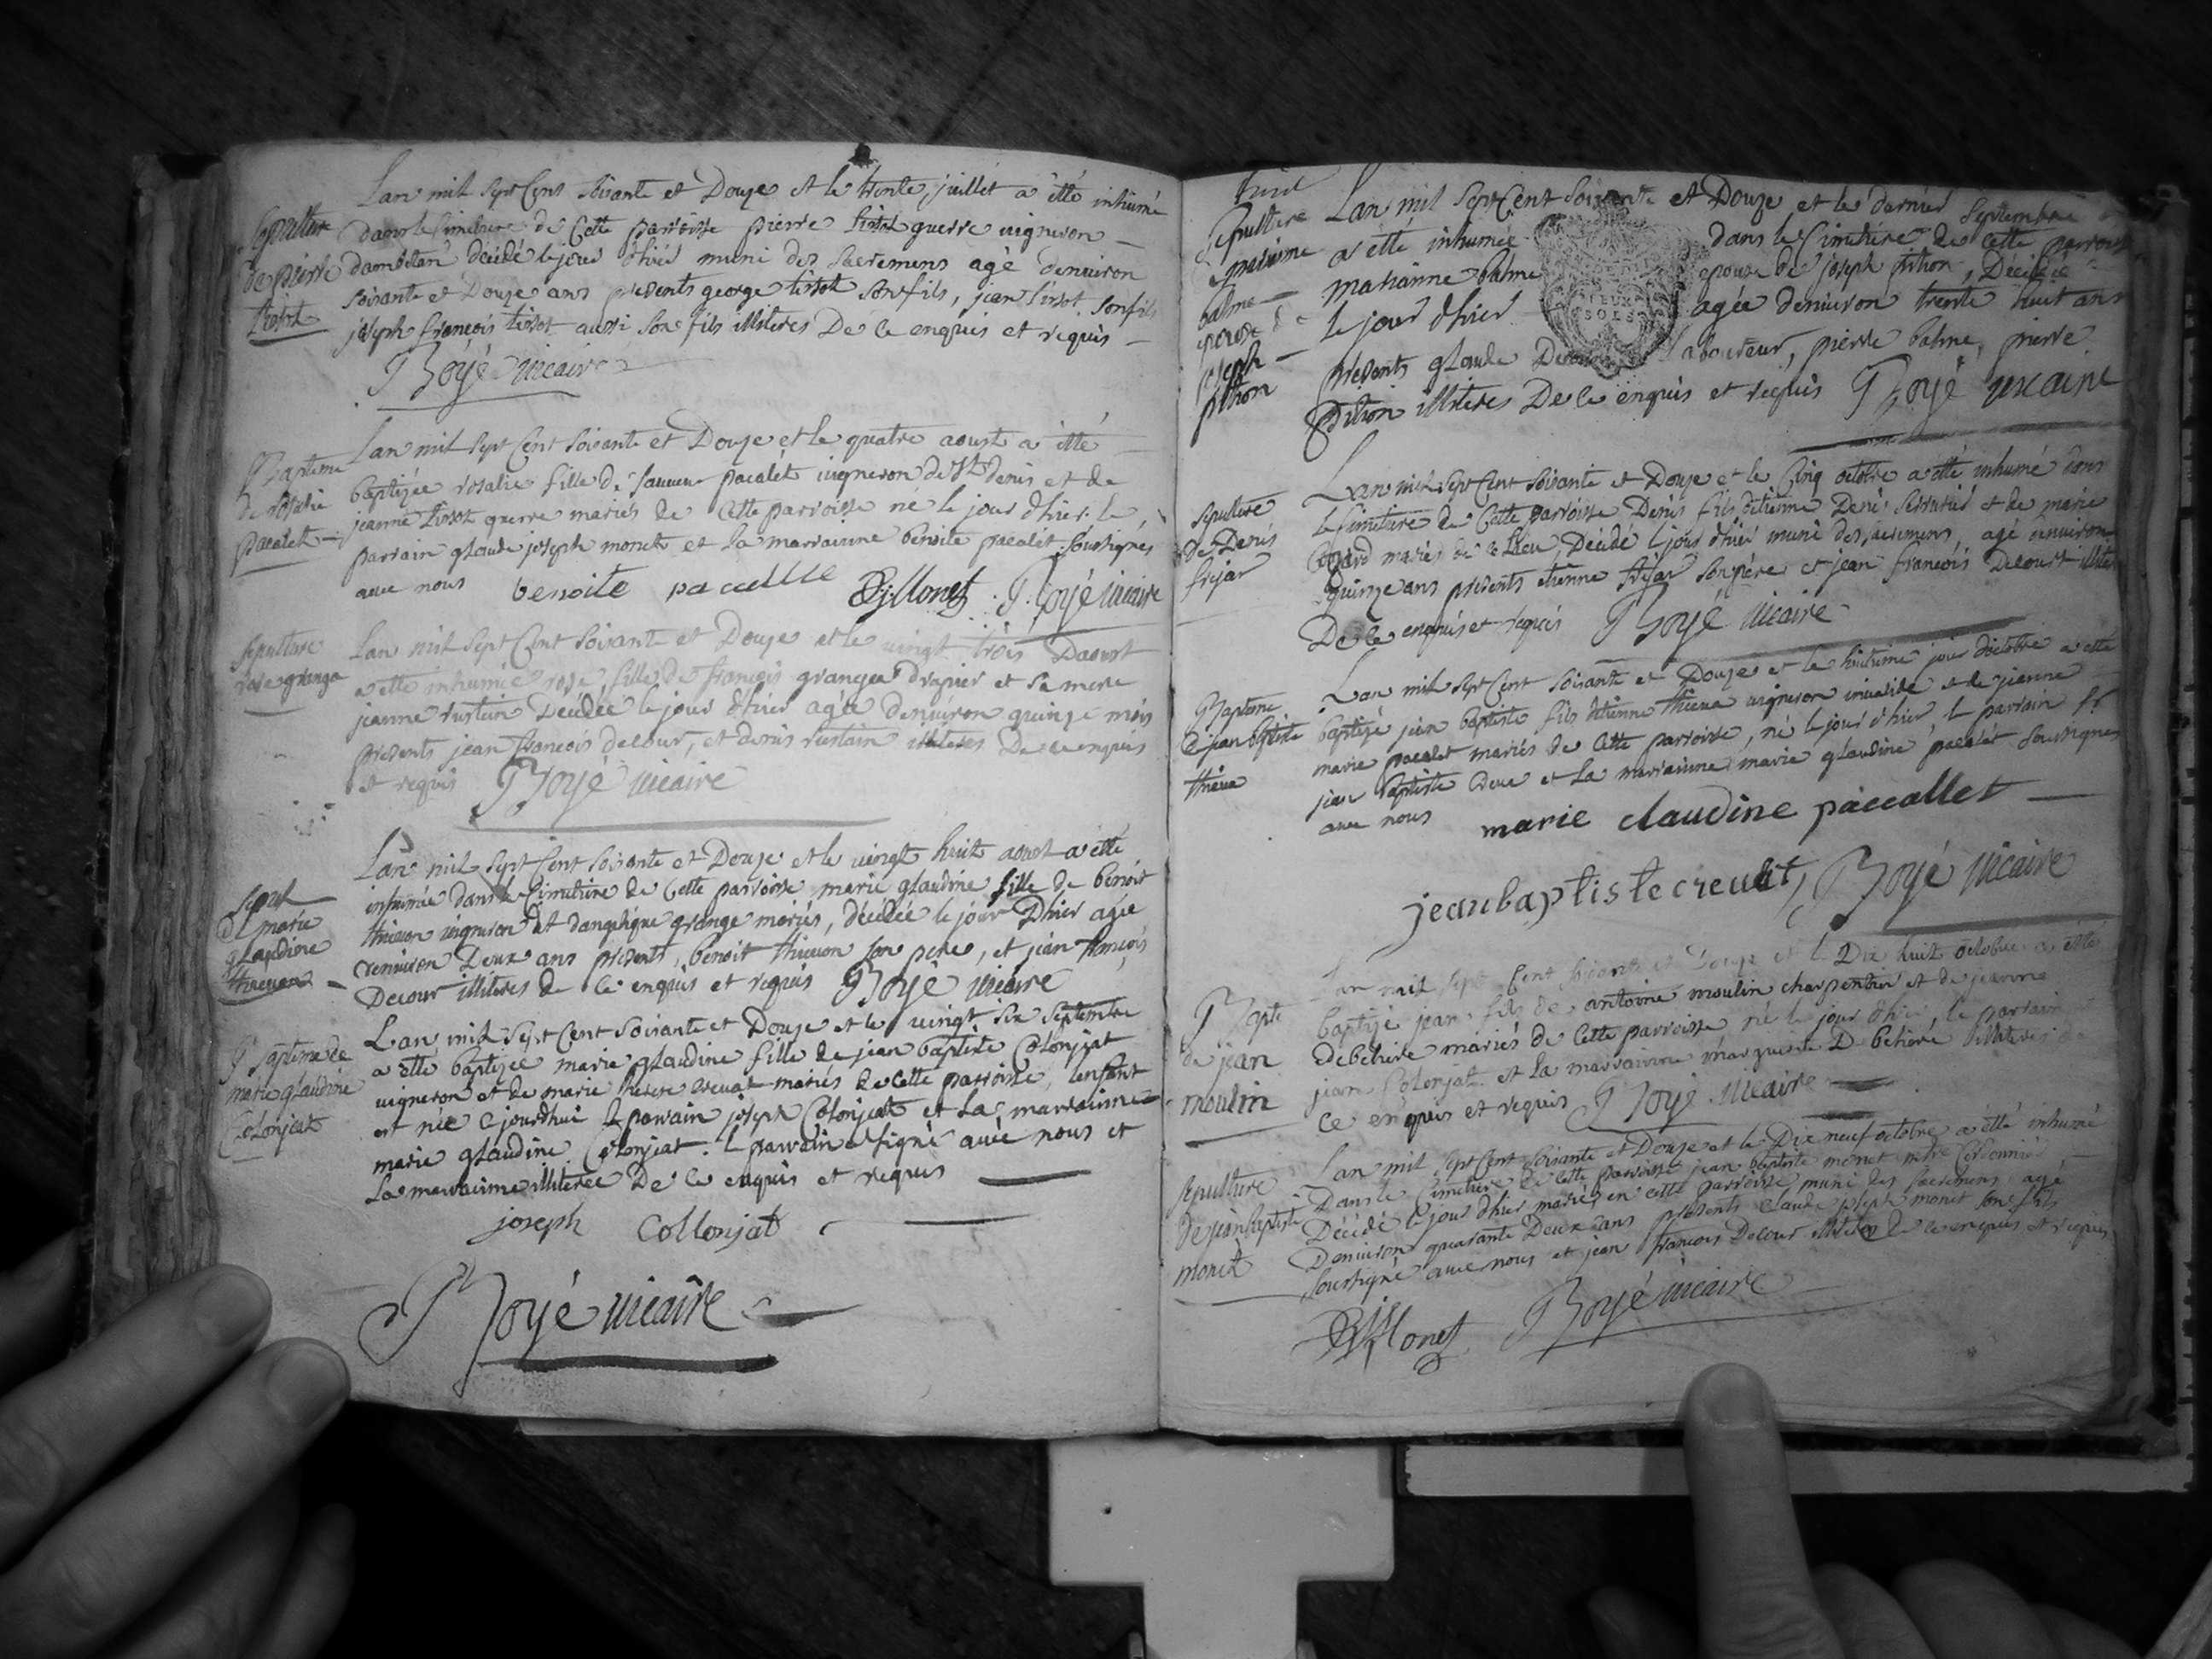 Lan mil sept Cent soixante et Douze et le trente juillet a été inhumé
dans le Cimetiere de Cette parroisse pierre tissot guerre vigneron
dambletan décédé le jour d'hier muni des sacremens agé denuiron
soixante et Douze ans presents george tissot son fils, jean tissot son fils
joseph françois tissot aussi son fils illiteres De ce enquis et requis
Boyé vicaire
Sepulture
de pierre
tissot
Lan mil sept Cent soixante et Douze et le quatre aoust a été
baptizée rosalie fille de pacalet vigneron de st denis et de
jeanne tissot guerre mariés de Cette parroisse né le jour d'hier le
parrain glaude joseph monet et la marrainne benoite pacalet soussignés
avec nous benoite pacallle Monet Boyé vicaire
Bapteme
de rosalie
pacalet
Lan mil sept Cent soixante et Douze et le vingt trois Daoust
a été inhumée roze fille de françois grangea drapier et sa mere
jeanne rustain Décédée le jour d'hier agée denuiron quinze mois
presents jean françois decour, et denis rustain illiteres De ce enquis
et requis Boyé vicaire
Sepulture
roze granga
Lan mil sept Cent soixante et Douze et le vingt huit aoust a été
inhumée dans le Cimetiere de Cette parroisse marie glaudine fille de benoit
thieuon vigneron et dangelique grange mariés, décédée le jour Dhier agée
denuiron Deux ans presents, benoit thieuon son pere, et jean françois
Decour illiteres de ce enquis et requis Boyé vicaire
Sepult
De marie
glaudine
thieuon
Lan mil sept Cent soixante et Douze et le vingt six septembre
a été baptizée marie glaudine fille de jean baptiste Colonjat
vigneron et de marie therese creuat mariés de cette parroisse, lenfant
est née cejourdhui le parrain joseph Colonjat et la marrainne
marie glaudine Colonjat. le parrain a signé avec nous et
la marrainne illiteree De ce enquis et requis
joseph Collonjat
Boyé vicaire
Bapteme de
marie glaudine
Colonjat
Lan mil sept Cent soixante et Douze et le dernier septembre
a été inhumée dans le Cimetiere de cette parroisse
marianne balme epouse de joseph pithon, Décédée
le jour d'hier agée denuiron trente huit ans
presents glaude laboureur, pierre balme, pierre
pithon illiteres De ce enquis et requis Boyé vicaire
Sepulture
balme
epouse de
joseph
pithon
SOLS
Lan mil sept Cent soixante et Douze et le Cinq octobre a été inhumé dans
le Cimetiere de Cette parroisse Denis fils detienne Denis serrurier et de marie
mariés de ce Lieu, Décédé le jour d'hier muni des sacremens, agé denuiron
quinze ans presents etienne frejar son père et jean françois Decourt illiteres
De ce enquis et requis Boyé vicaire
Sepulture
de Denis
frejar
Lan mil sept Cent soixante et Douze et le huitieme jour doctobre a été
baptizé jean baptiste fils detienne thieua vigneron inualide et de jeanne
marie pacalet mariés de Cette parroisse, né le jour d'hier le parrain sr
jean baptiste creua et la marrainne marie glaudine pacalet soussignes
avec nous marie claudine paccallet
jean baptiste creuat Boyé vicaire
Bapteme
de jean baptiste
thieua
Lan mil sept Cent soixante et Douze et le Dix huit octobre a été
baptizé jean fils de antoine moulin charpentier et de jeanne
debetiere mariés de Cette parroisse né le jour d'hier, le parrain
jean Colonjat et la marrainne marguerite De betiere illiteres de
ce enquis et requis Boyé vicaire
Bapte
de jean
moulin
Lan mil sept Cent soixante et Douze et le Dix neuf octobre a été inhumé
Dans le Cimetiere de cette parroisse jean baptiste monet maitre Cordonnier
Décédé le jour d'hier marié en cette parroisse muni des sacremens, agé
Denuiron quarante Deux ans presents claude joseph monet son fils
soussigné avec nous et jean françois Decour illiteré de ce enquis et requis
Monet Boyé vicaire
Sepulture
de jean baptiste
monet